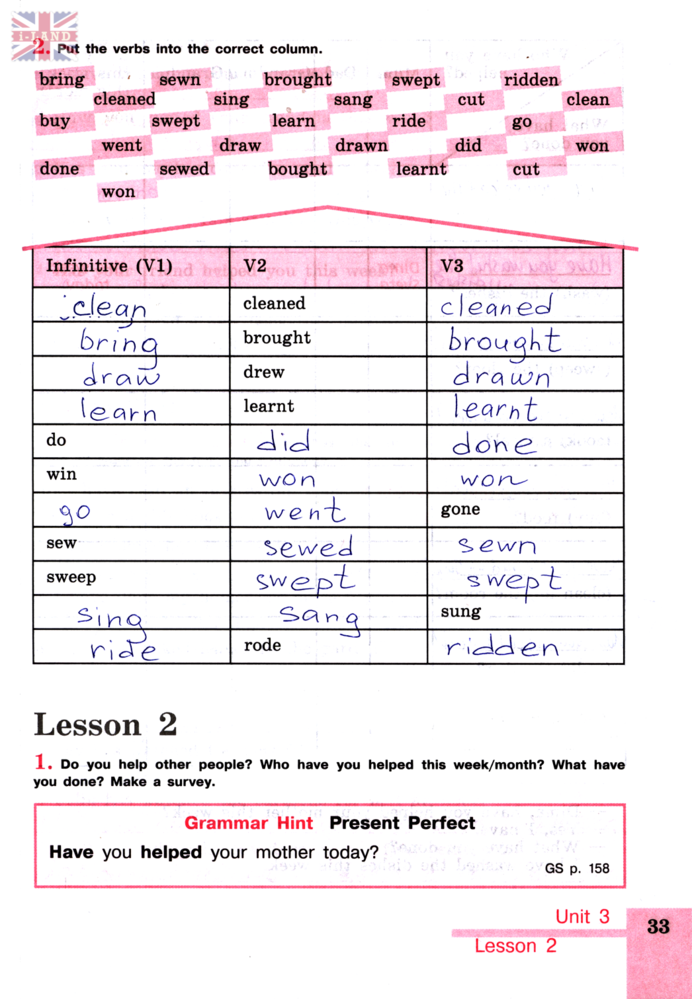 I-LAND
2. Put the verbs into the correct column.
bring sewn brought swept ridden
cleaned sing sang cut clean
buy swept learn ride go
went draw drawn did won
done sewed bought learnt cut
won
Infinitive (V1) V2 V3
clean cleaned cleaned
bring brought brought
draw drew drawn
learn learnt learnt
do did done
win won won
go went gone
sew sewed sewn
sweep swept swept
sing sang sung
ride rode ridden
Lesson 2
1. Do you help other people? Who have you helped this week/month? What have
you done? Make a survey.
Grammar Hint Present Perfect
Have you helped your mother today?
GS p. 158
Unit 3
33
Lesson 2